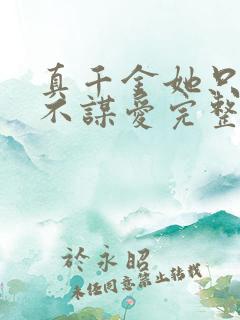 真千金她只
不謀愛完整
於永昭
未经同意禁止转载